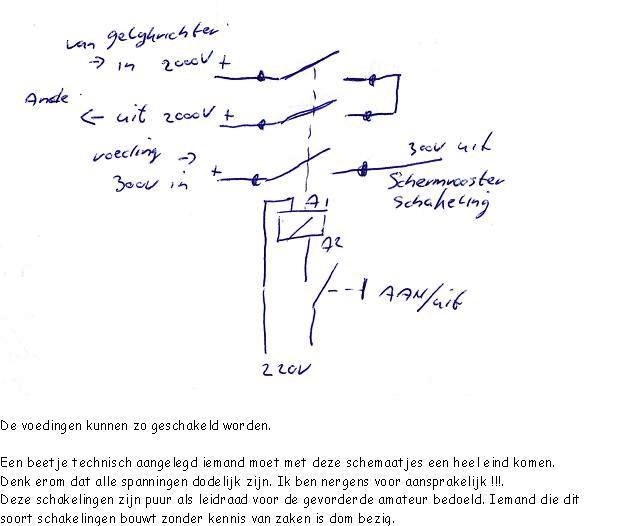 van gelykrichter
→ in 2000V +
Anode
← uit 2000V +
voeding →
300V in +
300V uit
Schermrooster
Schakeling
A1
A2
AAN/uit
220V
De voedingen kunnen zo geschakeld worden.
Een beetje technisch aangelegd iemand moet met deze schemaatjes een heel eind komen.
Denk erom dat alle spanningen dodelijk zijn. Ik ben nergens voor aansprakelijk !!!.
Deze schakelingen zijn puur als leidraad voor de gevorderde amateur bedoeld. Iemand die dit
soort schakelingen bouwt zonder kennis van zaken is dom bezig.